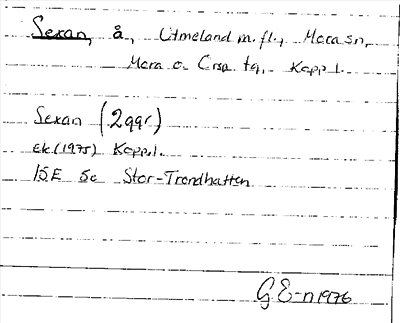 Sexan, å, Utmeland m.fl., Mora sn,
Mora o. Orsa tg, Kopp l.
Sexan (2ggr)
ek.(1975) Kopp.l.
15E 5c Stor-Trondhatten
G E-n 1976